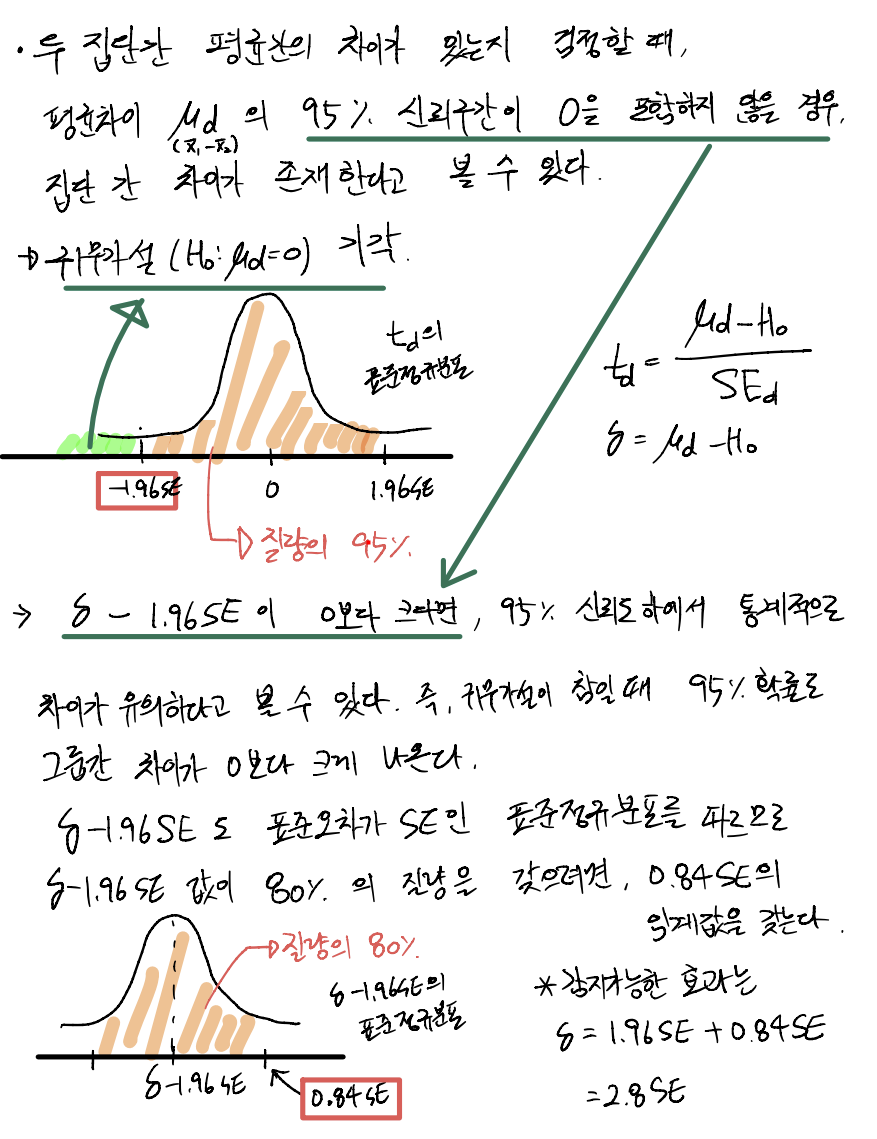 · 두 집단간 평균간의 차이가 있는지 결정할 때,
평균차이 μd 의 95% 신뢰구간이 0을 포함하지 않을 경우,
(x̄₁-x̄₂)
집단 간 차이가 존재한다고 볼 수 있다.
→ 귀무가설 (H₀: μd=0) 기각.
td의
표준정규분포
td = (μd-H₀)/SEd
δ = μd -H₀
-1.96SE 0 1.96SE
질량의 95%.
→ δ - 1.96SE 이 0보다 크다면, 95% 신뢰도하에서 통계적으로
차이가 유의하다고 볼 수 있다. 즉, 귀무가설이 참일 때 95% 확률로
그룹간 차이가 0보다 크게 나온다.
δ-1.96SE 도 표준오차가 SE인 표준정규분포를 따르므로
δ-1.96SE 값이 80%. 의 질량을 갖으려면, 0.84SE의
임계값을 갖는다.
질량의 80%.
δ-1.96SE의
표준정규분포
δ-1.96SE
0.84SE
* 감지가능한 효과는
δ = 1.96SE + 0.84SE
= 2.8SE